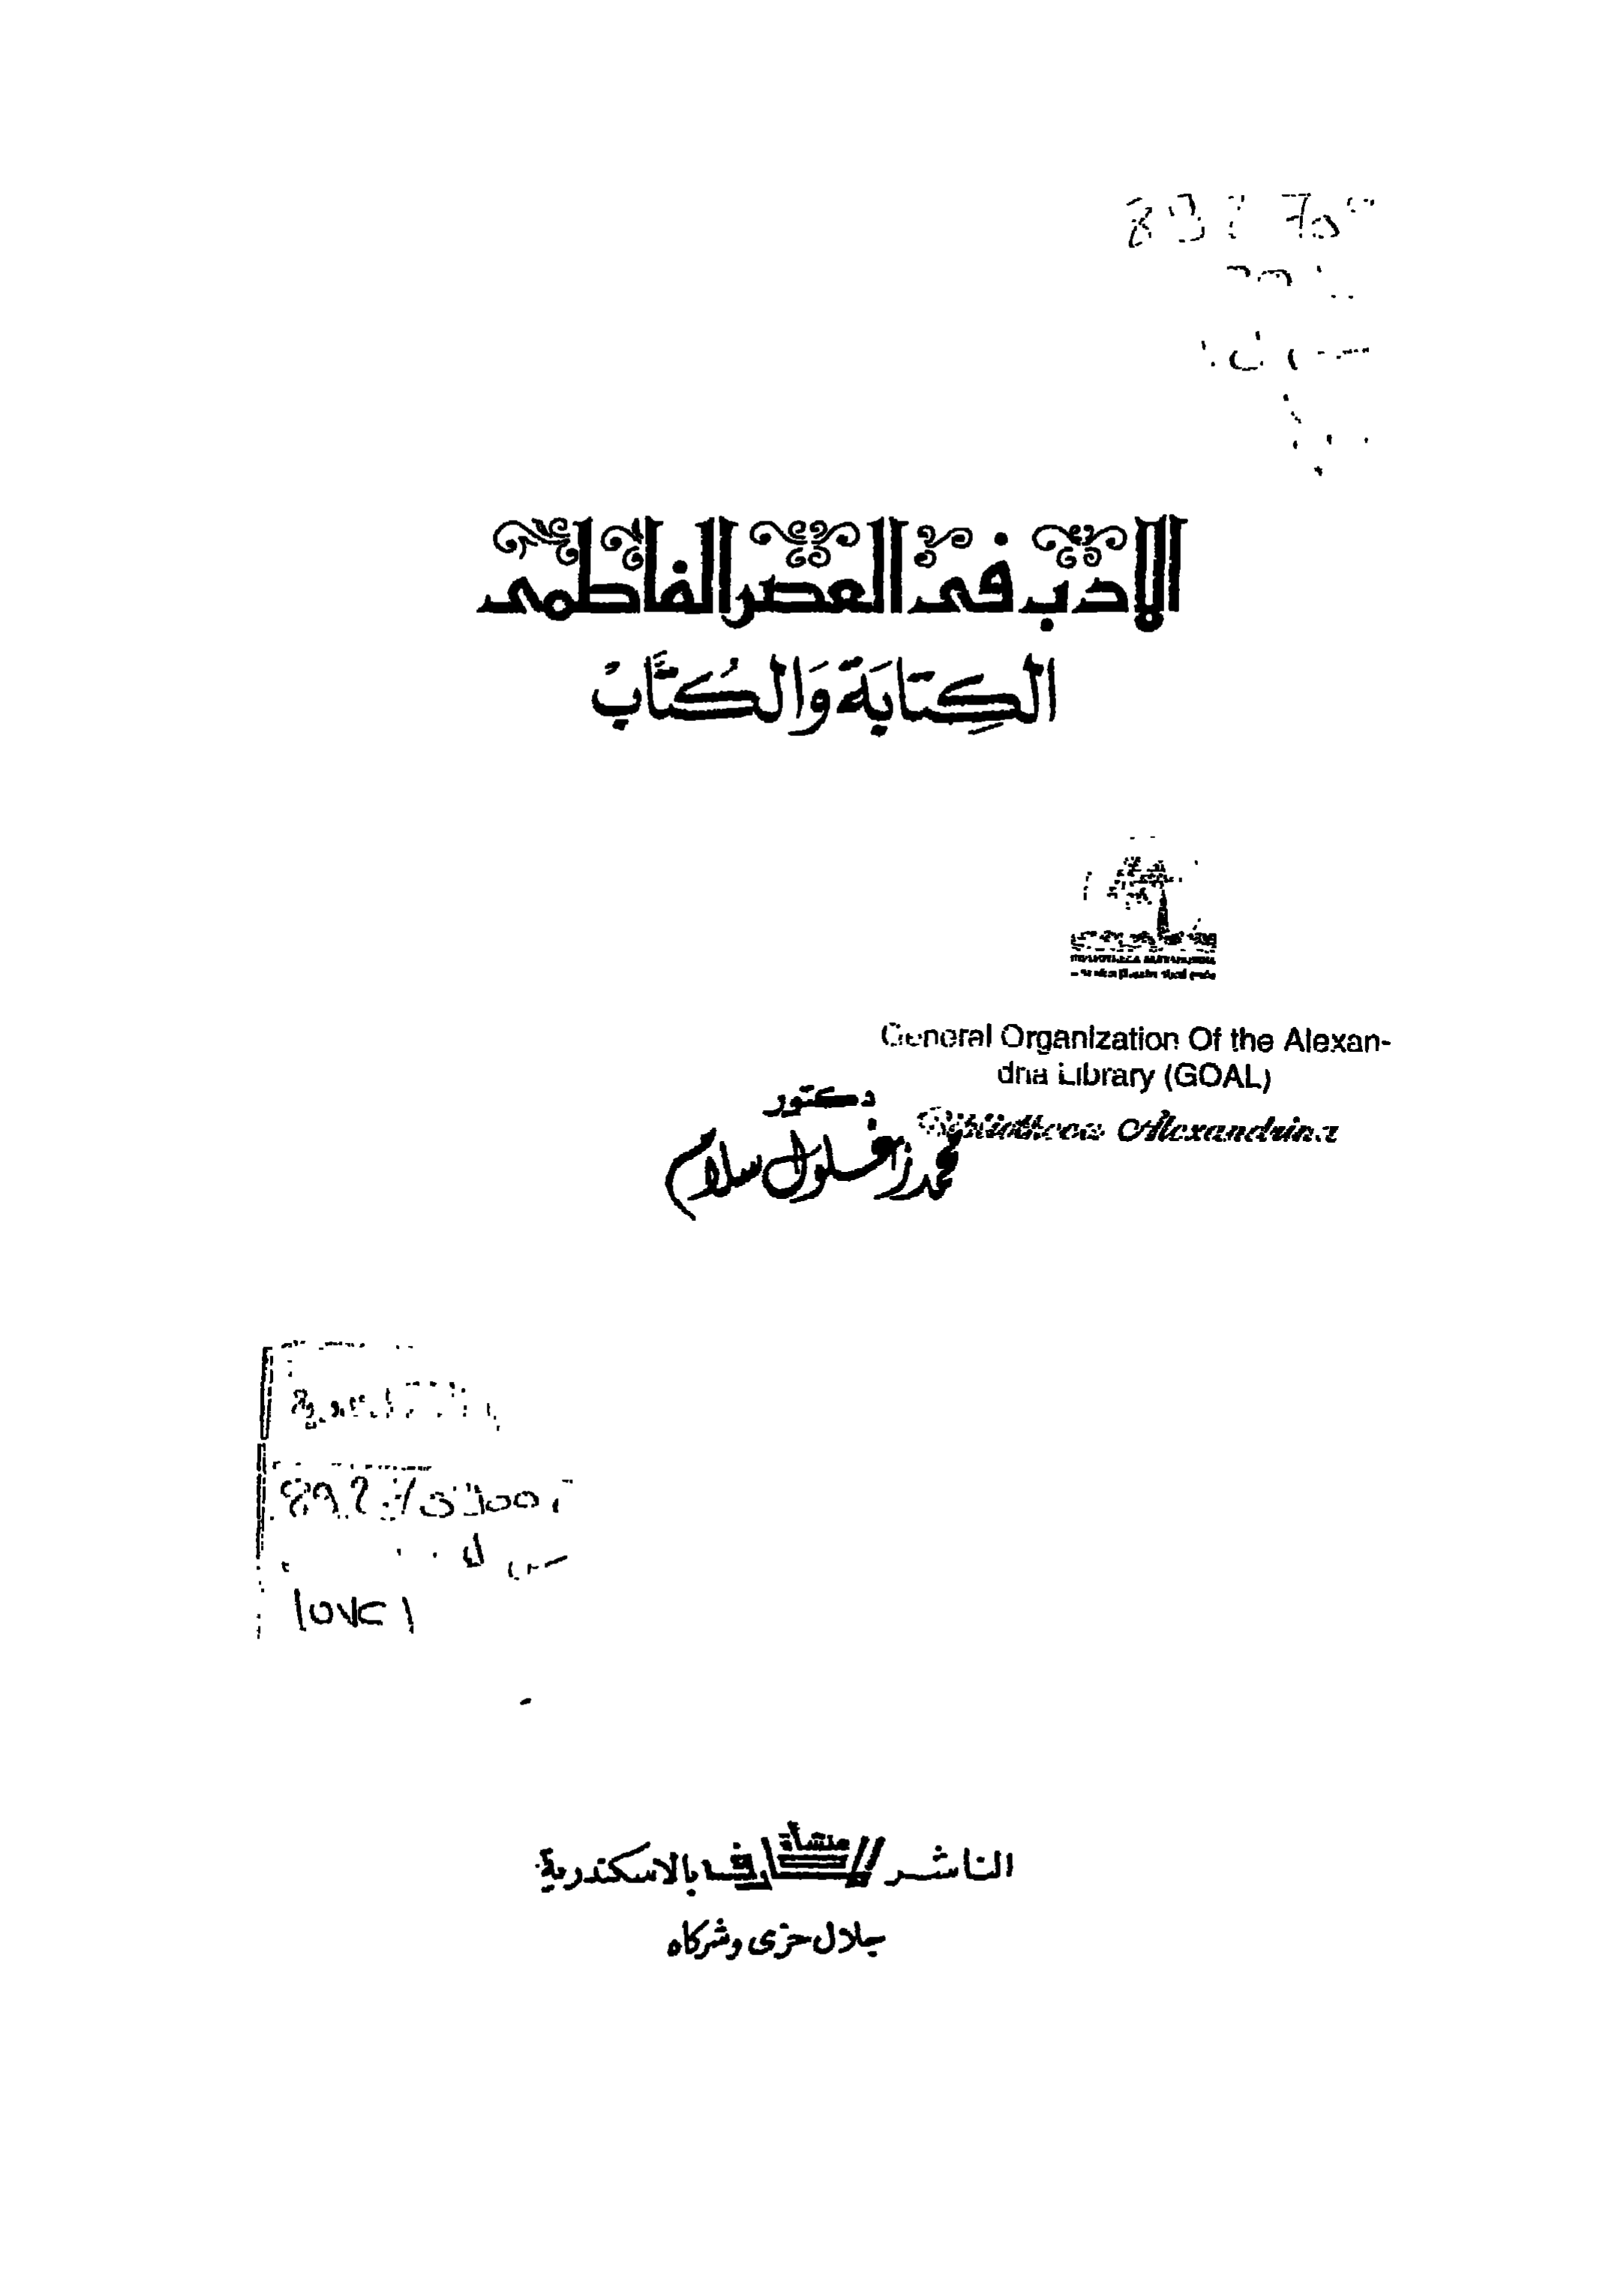 الادب فى العصر الفاطمى
الكِتابَة وَالكُتَّابْ
BIBLIOTHECA ALEXANDRINA
General Organization Of the Alexan-
dria Library (GOAL)
Bibliotheca Alexandrina
دكتور
محمد زغلول سلام
١٥٧٤١
الناشر منشأة المعارف بالاسكندرية
جلال حزى وشركاه